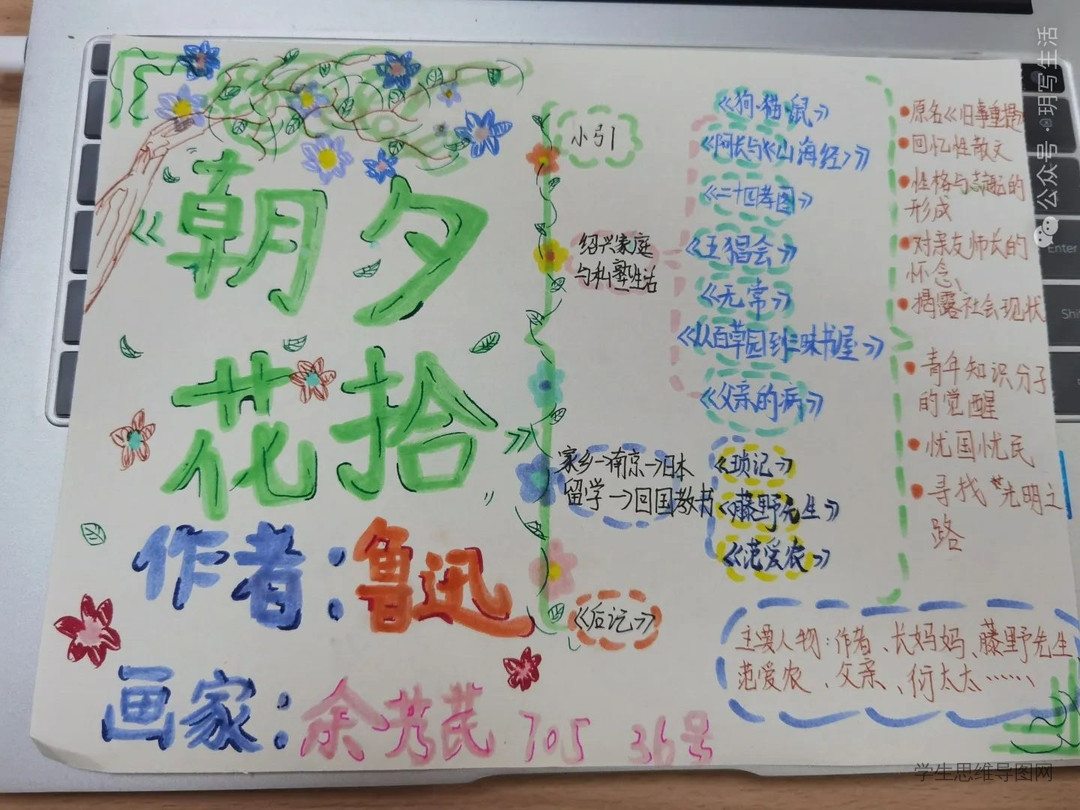 《朝夕
花拾》
作者：鲁迅
画家：余
705 36号
小引
绍兴家庭
与私塾生活
家乡→南京→日本
留学→回国教书
《后记》
《狗·猫·鼠》
《阿长与《山海经》》
《二十四孝图》
《五猖会》
《无常》
《从百草园到三味书屋》
《父亲的病》
《琐记》
《藤野先生》
《范爱农》
原名《旧事重提》
回忆性散文
性格与志趣的
形成
对亲友师长的
怀念
揭露社会现状
青年知识分子
的觉醒
忧国忧民
寻找“光明之
路
主要人物：作者、长妈妈、藤野先生
范爱农、父亲、衍太太……
公众号·玥写生活
学生思维导图网
Enter